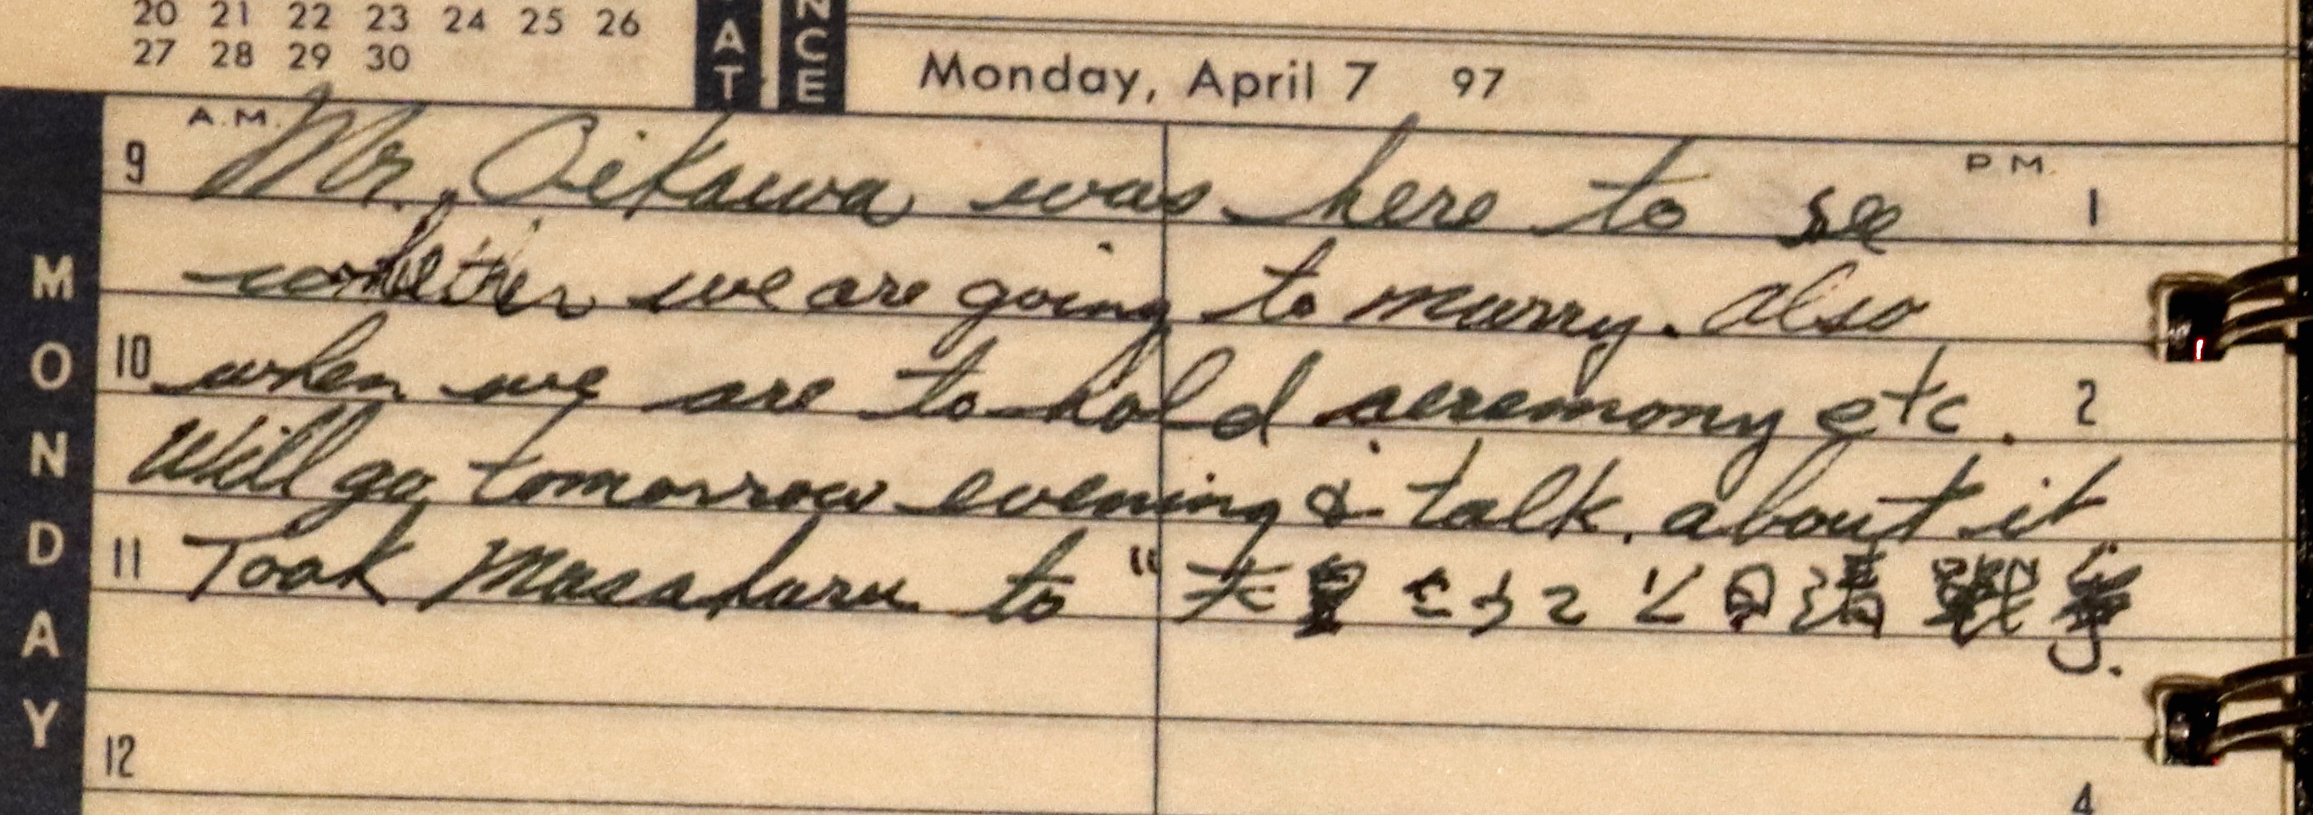 20 21 22 23 24 25 26
27 28 29 30
AT
NCE
Monday, April 7 97
MONDAY
A.M.
P.M.
9 Mr. Oikawa was here to see 1
whether we are going to marry. also
10 when we are to hold ceremony etc. 2
Will go tomorrow evening & talk about it
11 Took Masaharu to "天皇こうこと日清戰爭".
12
4